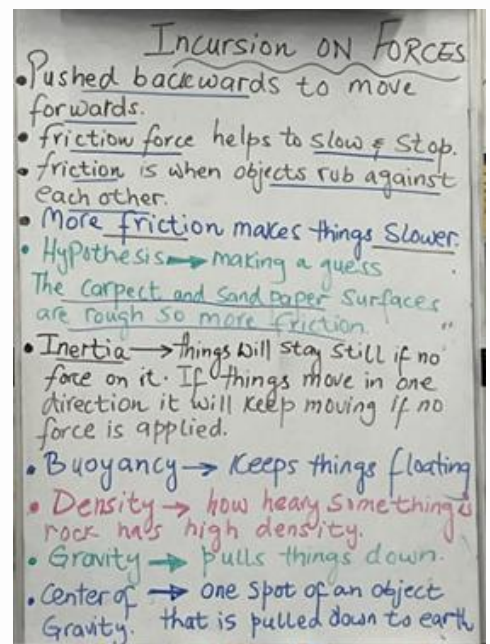 Incursion ON FORCES
• Pushed backwards to move
forwards.
• friction force helps to slow & stop.
• friction is when objects rub against
each other.
• More friction makes things slower.
• Hypothesis → making a guess
The carpect and sand paper surfaces
are rough so more friction.
• Inertia → things will stay still if no
force on it. If things move in one
direction it will keep moving if no
force is applied.
• Buoyancy → Keeps things floating
• Density → how heavy something is
rock has high density.
• Gravity → pulls things down.
• Center of → one spot of an object
Gravity. that is pulled down to earth